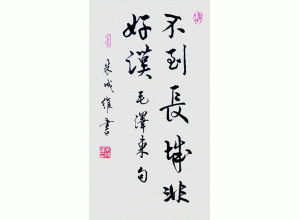 不到長城非
好漢毛澤東句
朱成維書